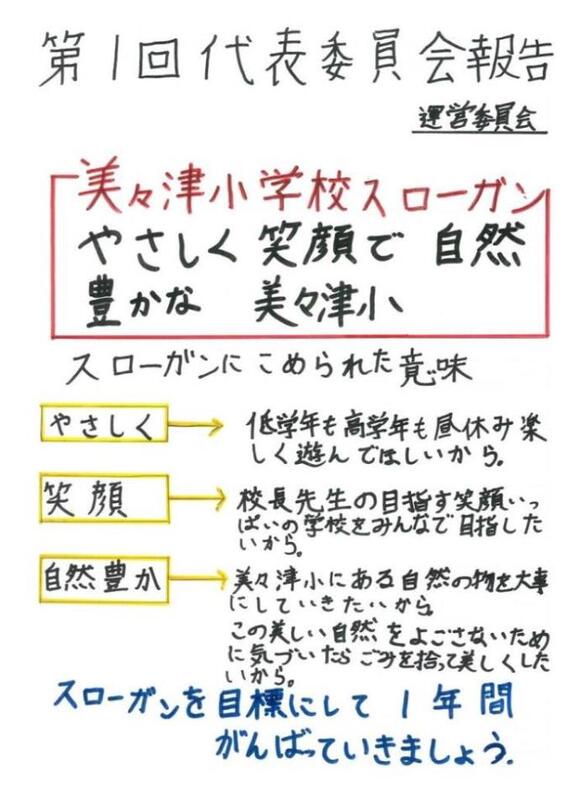 第1回代表委員会報告
運営委員会
美々津小学校スローガン
やさしく笑顔で 自然
豊かな 美々津小
スローガンにこめられた意味
やさしく
低学年も高学年も昼休み楽
しく遊んでほしいから。
笑顔
校長先生の目指す笑顔いっ
ぱいの学校をみんなで目指した
いから。
自然豊か
美々津小にある自然の物を大事
にしていきたいから。
この美しい自然をよごさないため
に気づいたらごみを拾って美しくした
いから。
スローガンを目標にして1年間
がんばっていきましょう。